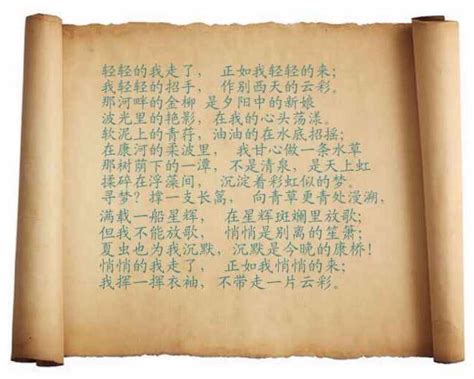 轻轻的我走了， 正如我轻轻的来；
我轻轻的招手， 作别西天的云彩。
那河畔的金柳 是夕阳中的新娘
波光里的艳影，在我的心头荡漾。
软泥上的青荇，油油的在水底招摇；
在康河的柔波里， 我甘心做一条水草
那树荫下的一潭，不是清泉，是天上虹
揉碎在浮藻间， 沉淀着彩虹似的梦。
寻梦？撑一支长蒿， 向青草更青处漫溯，
满载一船星辉， 在星辉斑斓里放歌；
但我不能放歌， 悄悄是别离的笙萧；
夏虫也为我沉默，沉默是今晚的康桥！
悄悄的我走了， 正如我悄悄的来；
我挥一挥衣袖，不带走一片云彩。